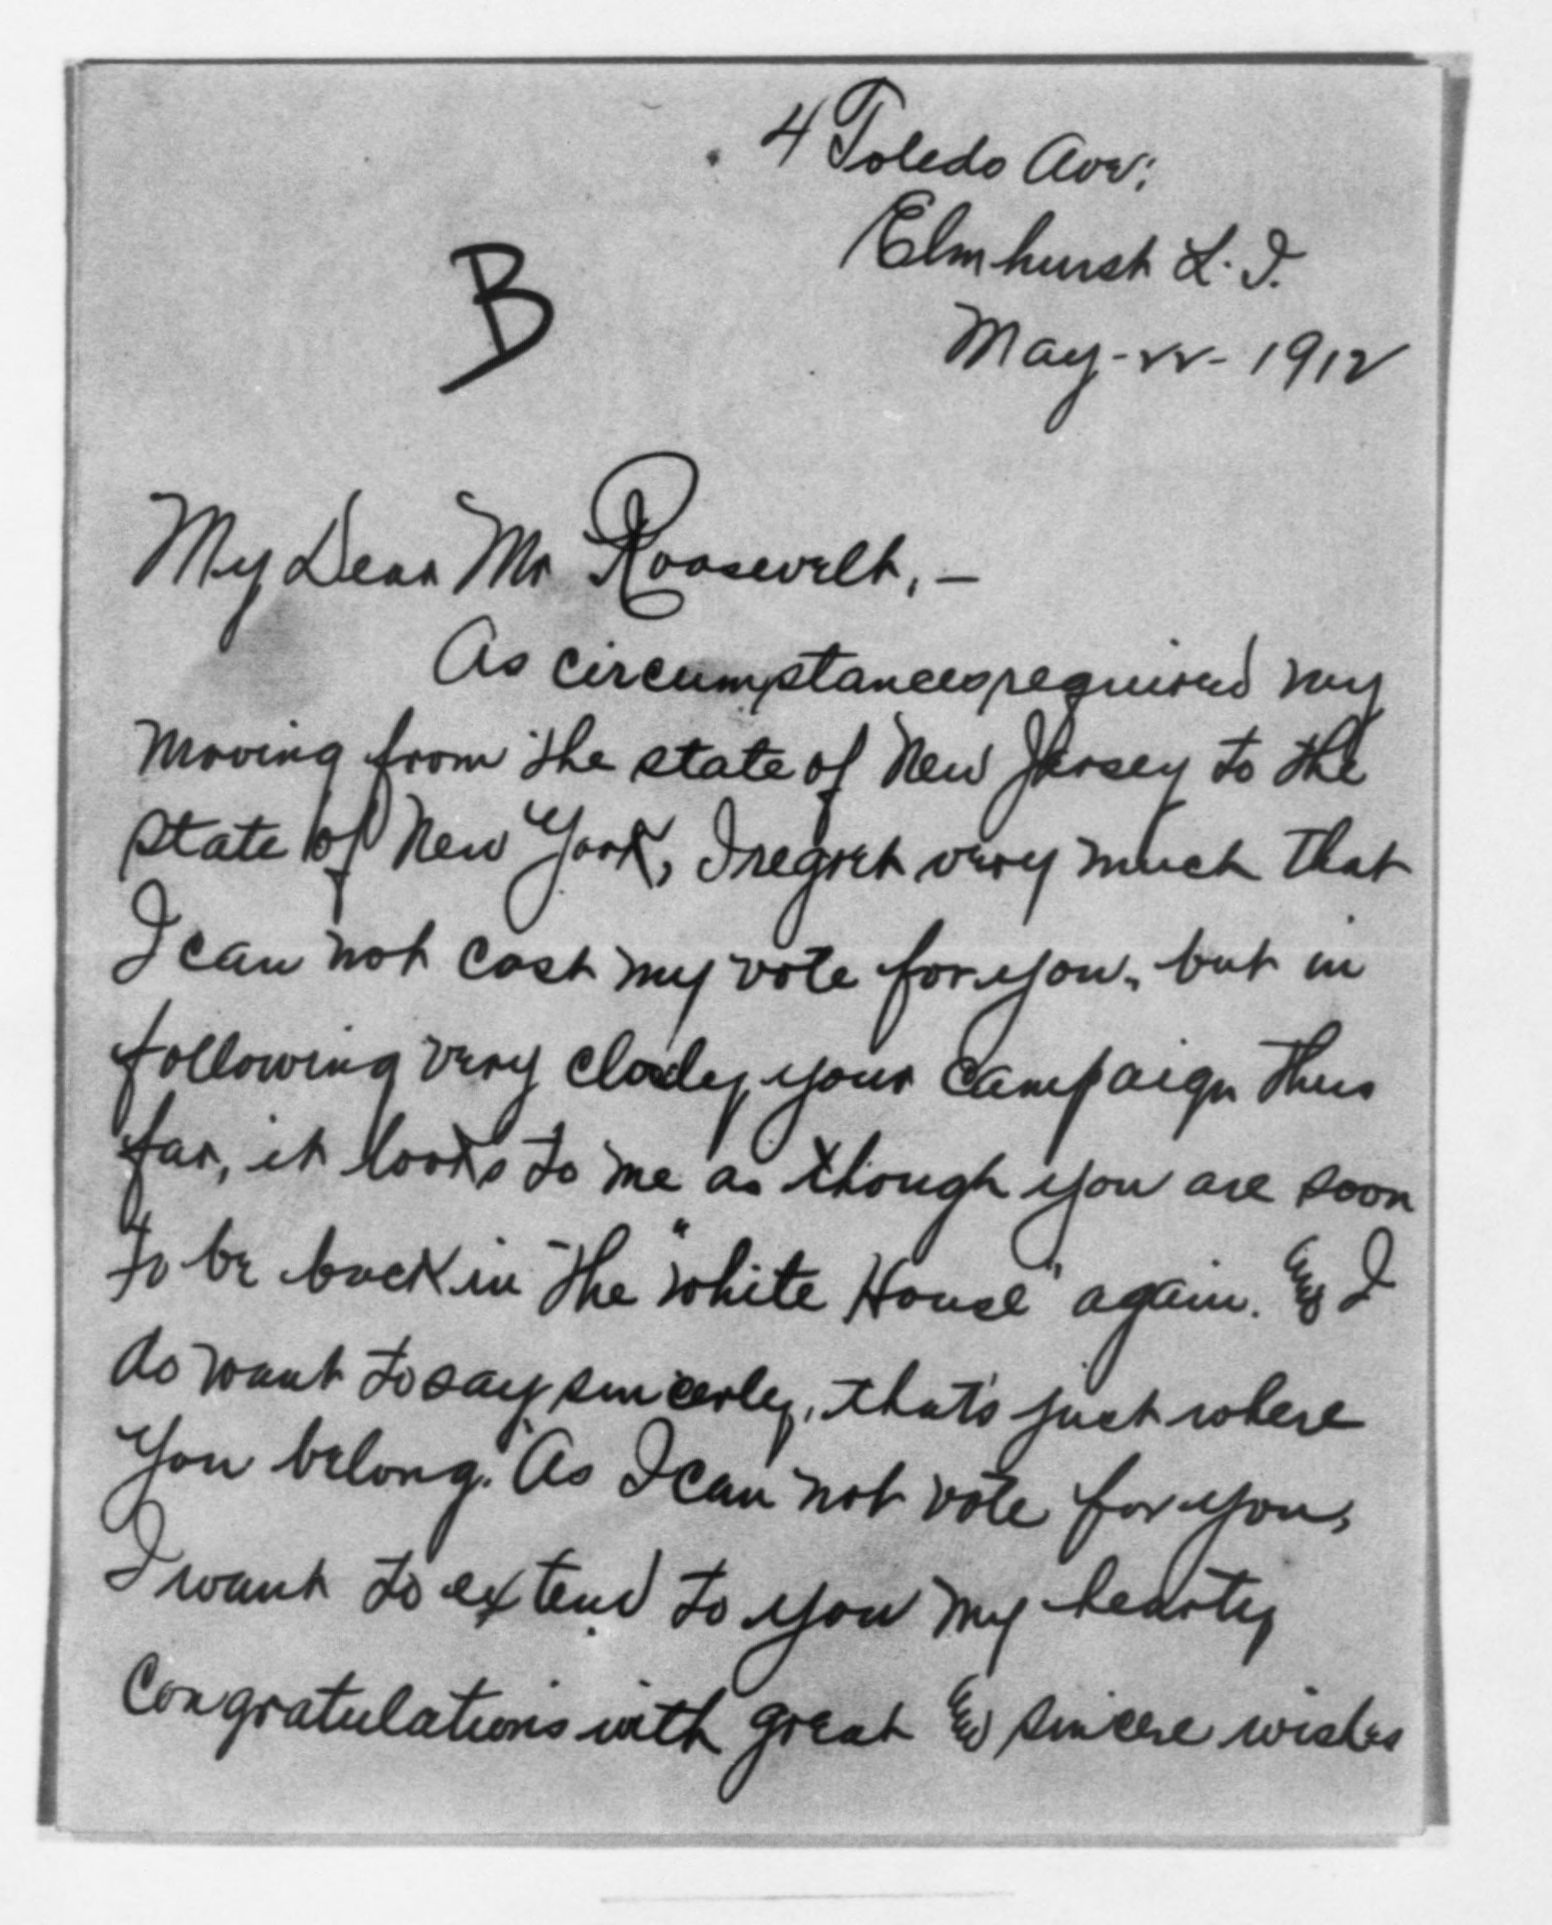 4 Toledo Ave;
Elmhurst L. I.
B
May-22-1912
My Dear Mr Roosevelt, —
As circumstances required my
moving from the state of New Jersey to the
state of New York, I regret very much that
I can not cast my vote for you, but in
following very closely your campaign thus
far, it looks to me as though you are soon
to be back in the "White House" again. & I
do want to say sincerly, that's just where
you belong. As I can not vote for you,
I want to extend to you my hearty
congratulations with great & sincere wishes